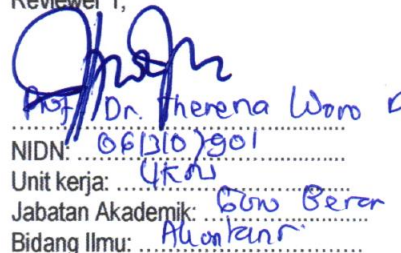 Reviewer 1,
Prof. Dr. Therena Woro D
NIDN: 0613107901
Unit kerja: UKSW
Jabatan Akademik: Guru Besar
Bidang Ilmu: Akuntansi